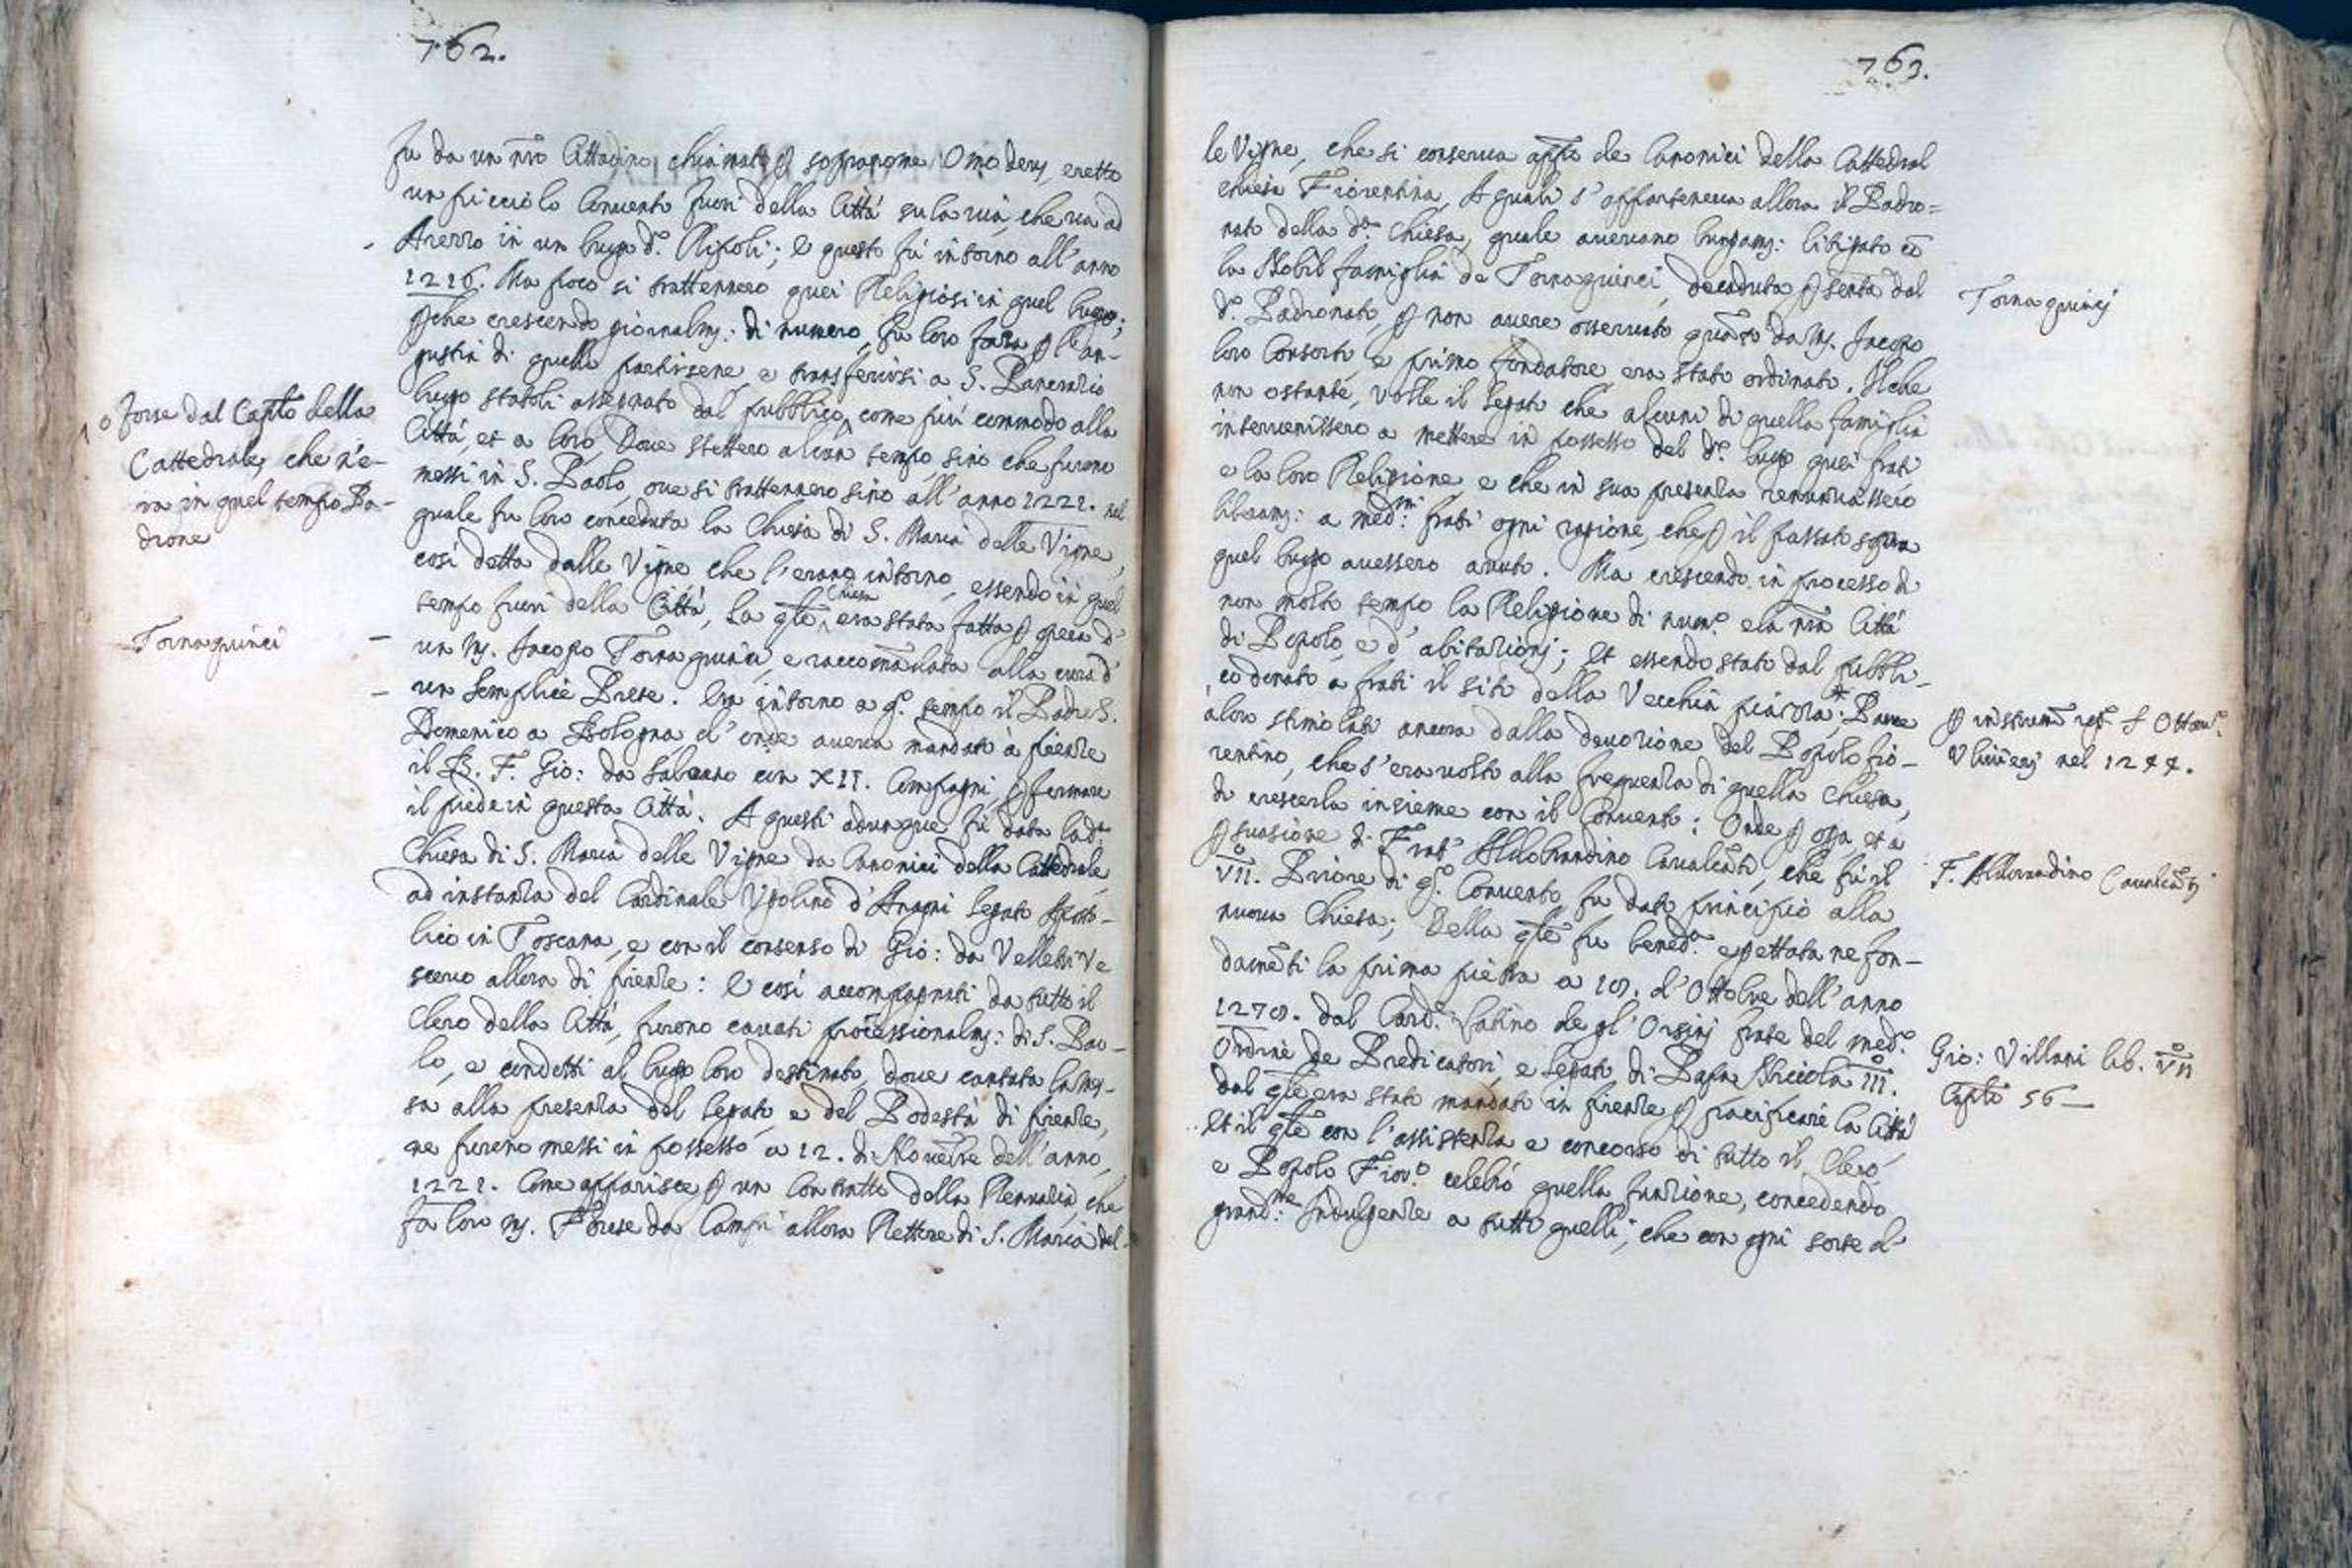 762.
fu da un nr̃o Cittadino chiamato ꝑ sopranome Omodeus, eretto
un piccciolo Convento fuori della Città su la via, che va ad
Arezzo in un luogo d.º Ripoli; e questo fù intorno all'anno
1216. Ma poco si trattennero quei Religiosi in quel luogo;
ꝑche crescendo giornalmẽ: di numero, fu loro forza ꝑ l'an-
gustia di quello partirsene, e transferirsi a S. Pancrazio
luogo statoli assegnato dal pubblico, come più commodo alla
Città, et a loro. Dove stettero alcun tempo, sino che furono
messi in S. Paolo, ove si trattennero sino all'anno 1221. nel
quale fu loro conceduta la Chiesa di S. Maria delle Vigne,
così detta dalle Vigne, che l'erano intorno, essendo in quel
tempo fuori della Città, La qle Chiesa era stata fatta ꝑ opera d'
un M. Jacopo Tornaquinci, e raccomãdata alla cura d'
un semplice Prete. Era intorno a q.º tempo il Padre S.
Domenico a Bologna, d'onde aveva mandato à Firenze
il B. F. Gio: da Salerno con XII. Compagni, ꝑ fermare
il piede in questa Città. A questi adunque fù data la d.ª
Chiesa di S. Maria delle Vigne da Canonici della Cattedrale,
ad instanza del Cardinale Vgolino d'Anagni Legato Aposto-
lico in Toscana, e con il consenso di Gio: da Velletri Ve
scovo allora di Firenze: E così accompagnati da tutto il
Clero della Città, furono cavati processionalmẽ: di S. Pao-
lo, e condotti al luogo loro destinato, dove cantata la Mes-
sa alla presenza del Legato, e del Podestà di Firenze,
ne furono messi in possesso a 12. di Novẽbre dell'anno
1221. Come apparisce ꝑ un Contratto della Renunzia, che
fa loro M. Forese da Campi allora Rettore di S. Maria del-
o Forse dal Capto della
Cattedrale, che n'e-
ra in quel tempo Pa-
drone
Tornaquinci
763.
le Vigne, che si conserva app̃o de Canonici della Cattedral
chiesa Fiorentina, A quali s'apparteneva allora il Padro=
nato della d.ª Chiesa, quale avevano lungamẽ: litigato cõ
la Nobil famiglia de Tornaquinci, decaduta ꝑ sentẽ dal
d.º Padronato, ꝑ non avere osservato quãto da M. Jacopo
loro Consorto, e primo fondatore era stato ordinato. Ilche
non ostante, volle il Legato che alcuni di quella famiglia
intervenissero a mettere in possesso del d.º luogo quei frati
e la loro Religione, e che in sua presenza renunziassero
liberamẽ: a med.ᵐⁱ frati ogni ragione, che ꝑ il passato sopra
quel luogo avessero avuto. Ma crescendo in processo di
non molto tempo la Religione di num.º e la nr̃a Città
di Popolo, e d'abitazionj; Et essendo stato dal pubbli-
co donato a frati il sito della Vecchia piazza*; Parve
a loro stimolati ancora dalla devozione del Popolo fio-
rentino, che s'era volto alla frequenza di quella Chiesa,
di crescerla insieme con il Convento: Onde ꝑ opa, et a
ꝑsuasione di Frat' Aldobrandino Cavalcãti, che fù il
VII.º Priore di q.º Convento, fu dato principio alla
nuova Chiesa; Della qle fu bened.ª e pettata ne fon-
damẽti la prima pietra a 18. d'Ottobre dell'anno
1278. dal Card.ˡ Latino de gl'Orsinj frate del med.º
Ordine de Predicatori, e Legato di Papa Niccola III.º
dal qle era stato mandato in Firenze ꝑ pacificare la Città
Et il qle con l'assistenza e concorso di tutto il Clero
e Popolo Fior.º celebrò quella funzione, concedendo
grand.ᵐᵉ Indulgenze a tutti quelli, che con ogni sorte d'
Tornaquincj
ꝑ instrumẽ rog.º S Ottav.º
Vlivierj nel 1244.
F. Aldovrandino Cavalcãtj
Gio: Villani lib. VII.º
Capto 56—